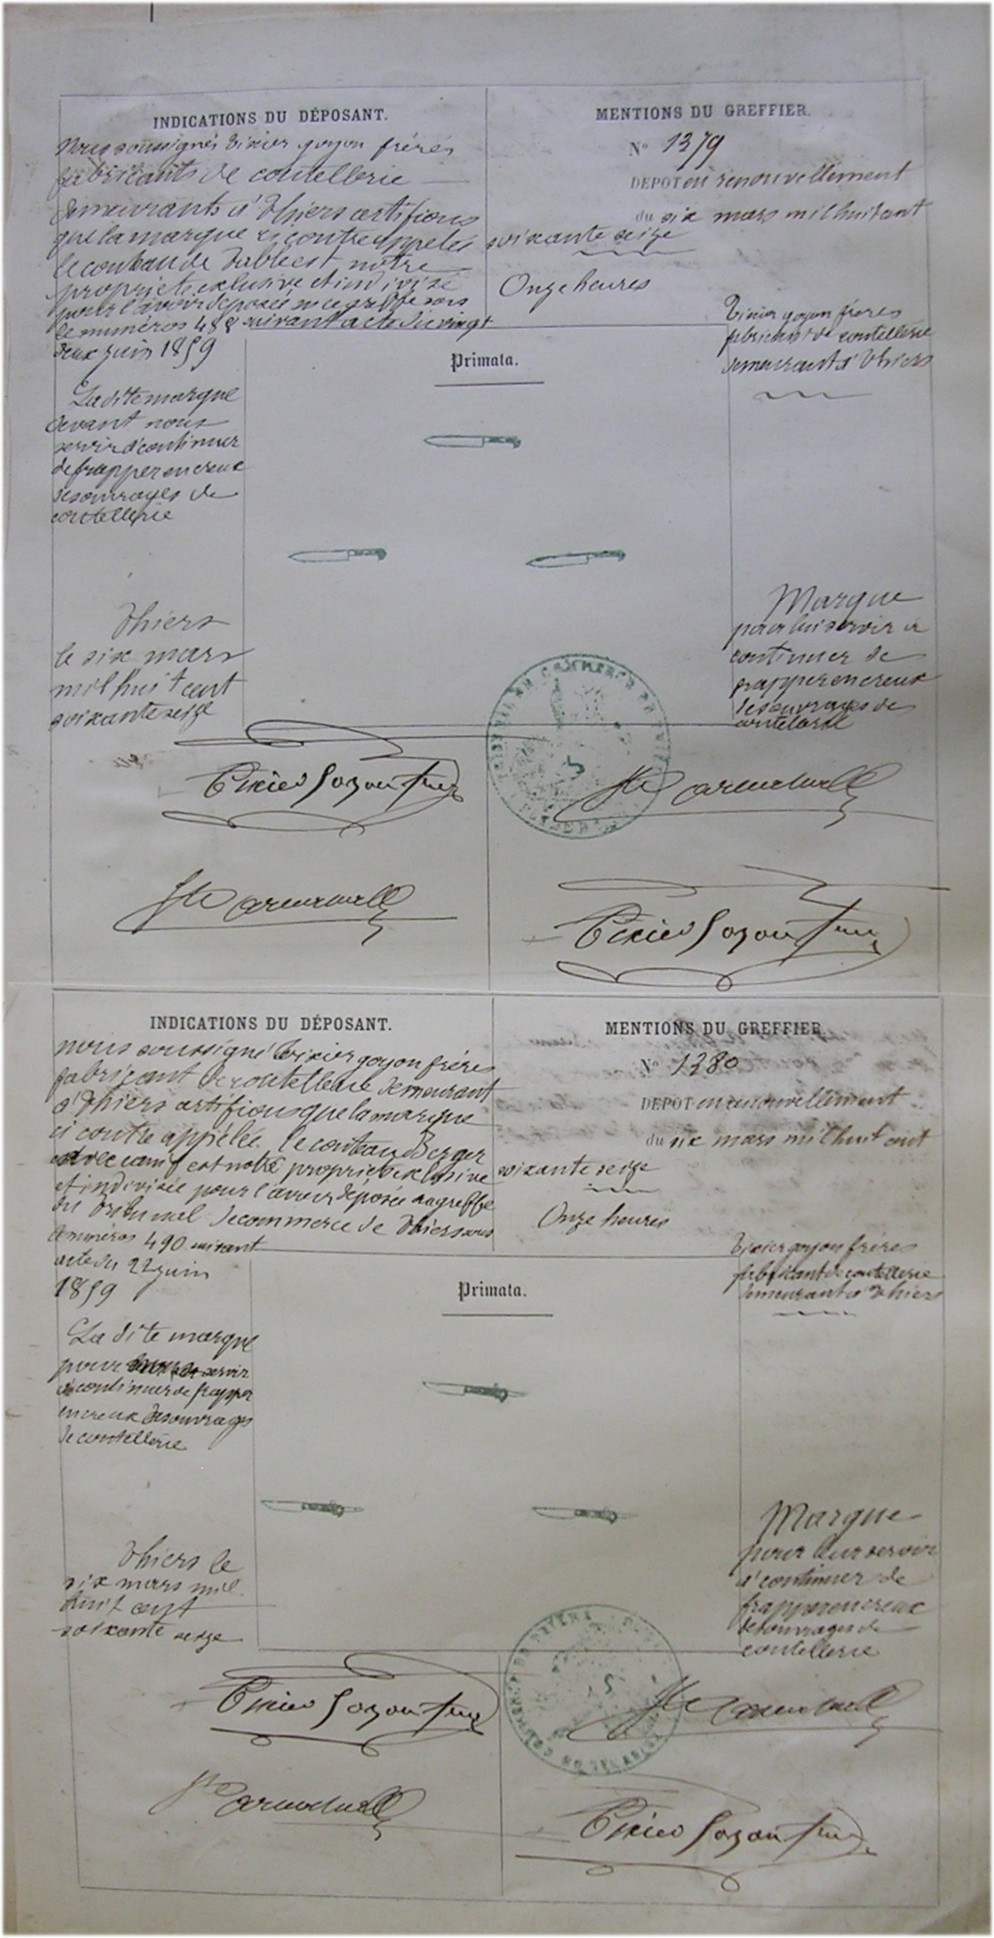 INDICATIONS DU DÉPOSANT.
Nous soussignés Tixier goyon frères
fabricants de coutellerie
demeurants a Thiers certifions
que la marque ci contre appelés
le couteau de Table est notre
propriété exclusive et indivise
pour l'avoir déposée au greffe sous
le numéros 488 suivant acte du vingt
deux juin 1859
La dite marque
devant nous
servir à continuer
de frapper en creux
des ouvrages de
coutellerie
Thiers
le six mars
mil huit cent
soixante seize
MENTIONS DU GREFFIER.
N° 1379
DEPOT en renouvellement
du six mars mil huit cent
soixante seize
Onze heures
Tixier goyon frères
fabricant de coutellerie
demeurant a Thiers
Primata.
Marque
pour lui servir a
continuer de
frapper en creux
des ouvrages de
coutellerie
Tixier Goyon frères
Tixier Goyon frères
INDICATIONS DU DÉPOSANT.
nous soussigné Tixier goyon frères
fabricant de coutellerie demeurant
a Thiers certifions que la marque
ci contre appelée le couteau Berger
avec canif est notre propriété exclusive
et indivisée pour l'avoir déposée au greffe
du Tribunal de commerce de Thiers sous
le numéros 490 suivant
acte du 22 juin
1859
La dite marque
pour servir
a continuer de frapper
en creux des ouvrages
de coutellerie
Thiers le
six mars mil
huit cent
soixante seize
MENTIONS DU GREFFIER.
N° 1380
DEPOT en renouvellement
du six mars mil huit cent
soixante seize
Onze heures
Tixier goyon frères
fabricant de coutellerie
demeurant a Thiers
Primata.
Marque
pour leur servir
a continuer de
frapper en creux
des ouvrages de
coutellerie
Tixier Goyon frères
Tixier Goyon frères